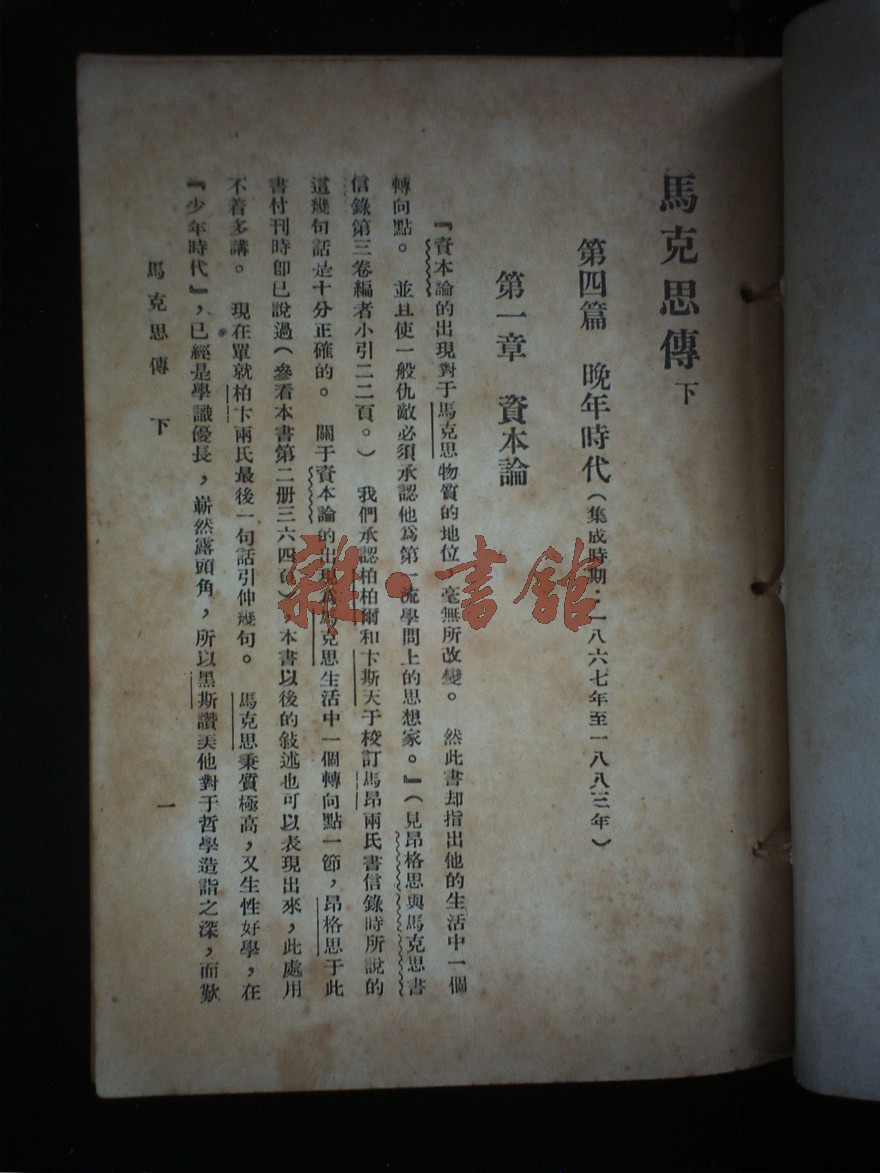 馬克思傳 下
第四篇 晚年時代(集成時期：一八六七年至一八八三年)
第一章 資本論
『資本論的出現對于馬克思物質的地位，毫無所改變。 然此書却指出他的生活中一個
轉向點。 並且使一般仇敵必須承認他爲第一流學問上的思想家。』(見昂格思與馬克思書
信錄第三卷編者小引二二頁。) 我們承認柏柏爾和卞斯天于校訂馬昂兩氏書信錄時所說的
這幾句話是十分正確的。 關于資本論的出現爲馬克思生活中一個轉向點一節，昂格思于此
書付刊時卽已說過(參看本書第二册三六四頁)，本書以後的敍述也可以表現出來，此處用
不着多講。 現在單就柏卞兩氏最後一句話引伸幾句。 馬克思秉質極高，又生性好學，在
『少年時代』，已經是學識優長，嶄然露頭角，所以黑斯讚美他對于哲學造詣之深，而歎
馬克思傳 下
一
雜·書館